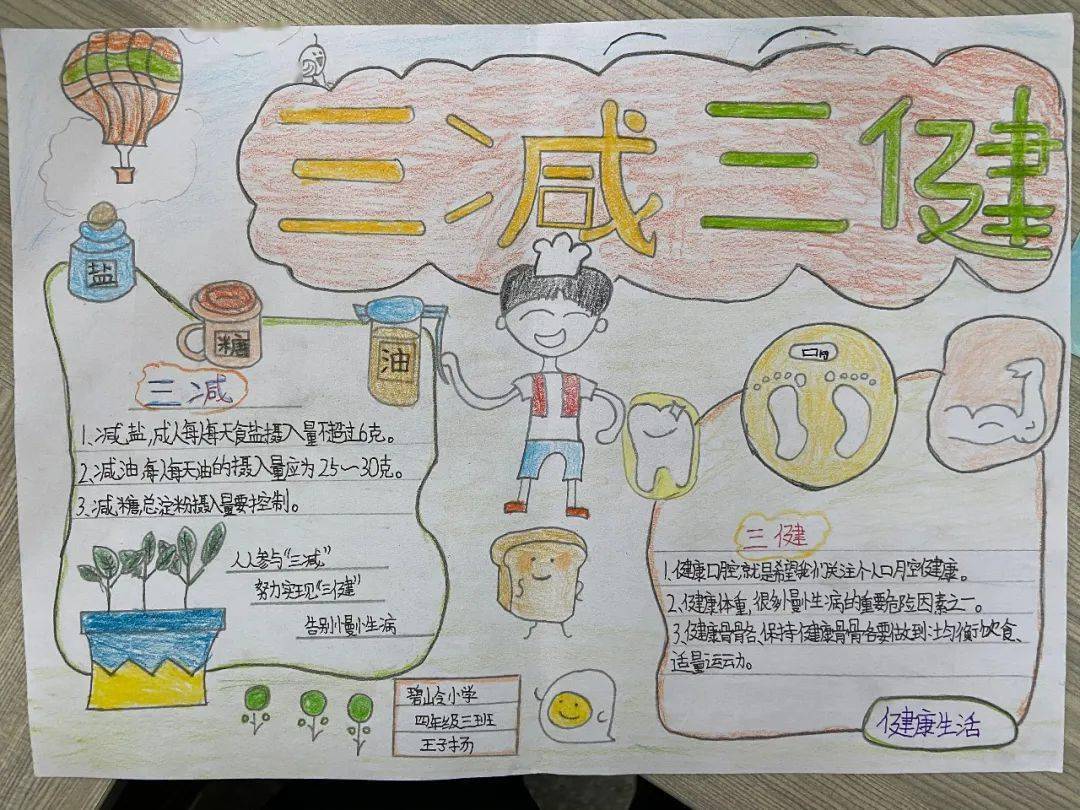 三减三健
盐
糖
油
三减
1、减盐,成人每人每天食盐摄入量不超过6克。
2、减油,每人每天油的摄入量应为25~30克。
3、减糖,总淀粉摄入量要控制。
人人参与“三减”
努力实现“三健”
告别慢性病
三健
1、健康口腔,就是希望我们关注个人口腔健康。
2、健康体重,很多慢性病的重要危险因素之一。
3、健康骨骼、保持健康骨骼要做到:均衡饮食、
适量运动。
碧山令小学
四年级三班
王子扬
健康生活